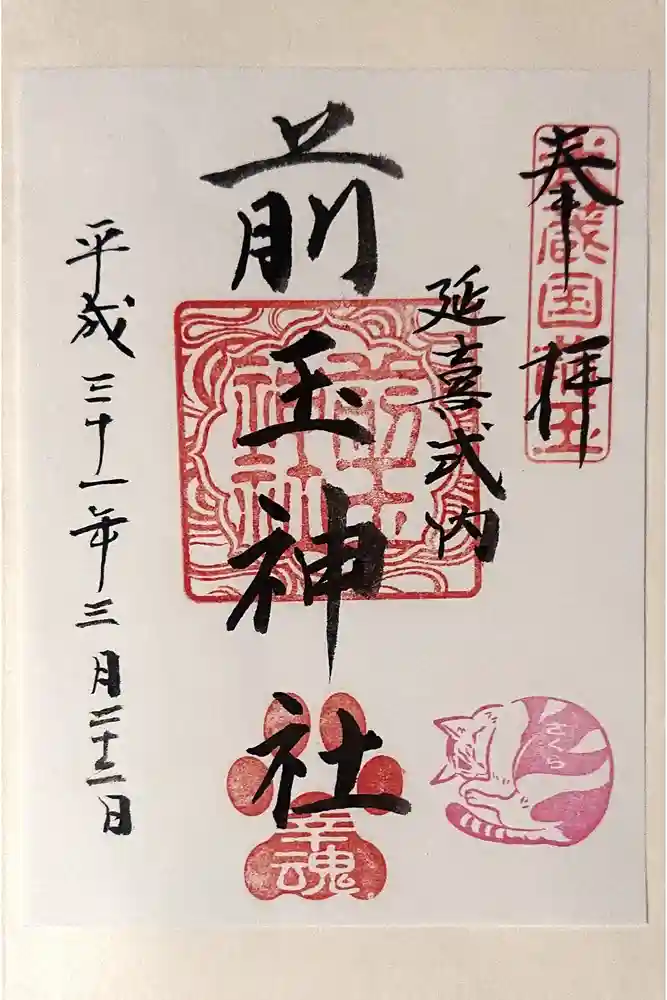 奉拝
武蔵国前玉
延喜式内
前玉神社
前玉神社
幸魂
さくら
平成三十一年三月二十二日